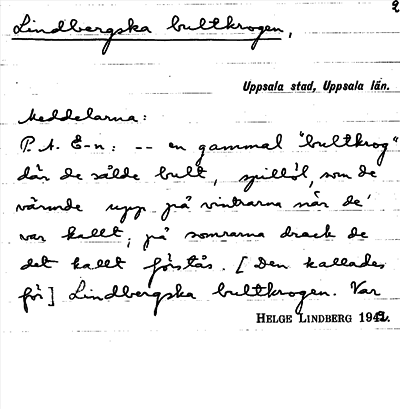 2
Lindbergska bultkrogen,
Uppsala stad, Uppsala län.
Meddelarna:
P. A. E-n: -- en gammal "bultkrog"
där de sålde bult, spillöl, som de
värmde upp på vintrarna när de'
var kallt, på somrarna drack de
det kallt förstås. [Den kallades
för] Lindbergska bultkrogen. Var
HELGE LINDBERG 1942.